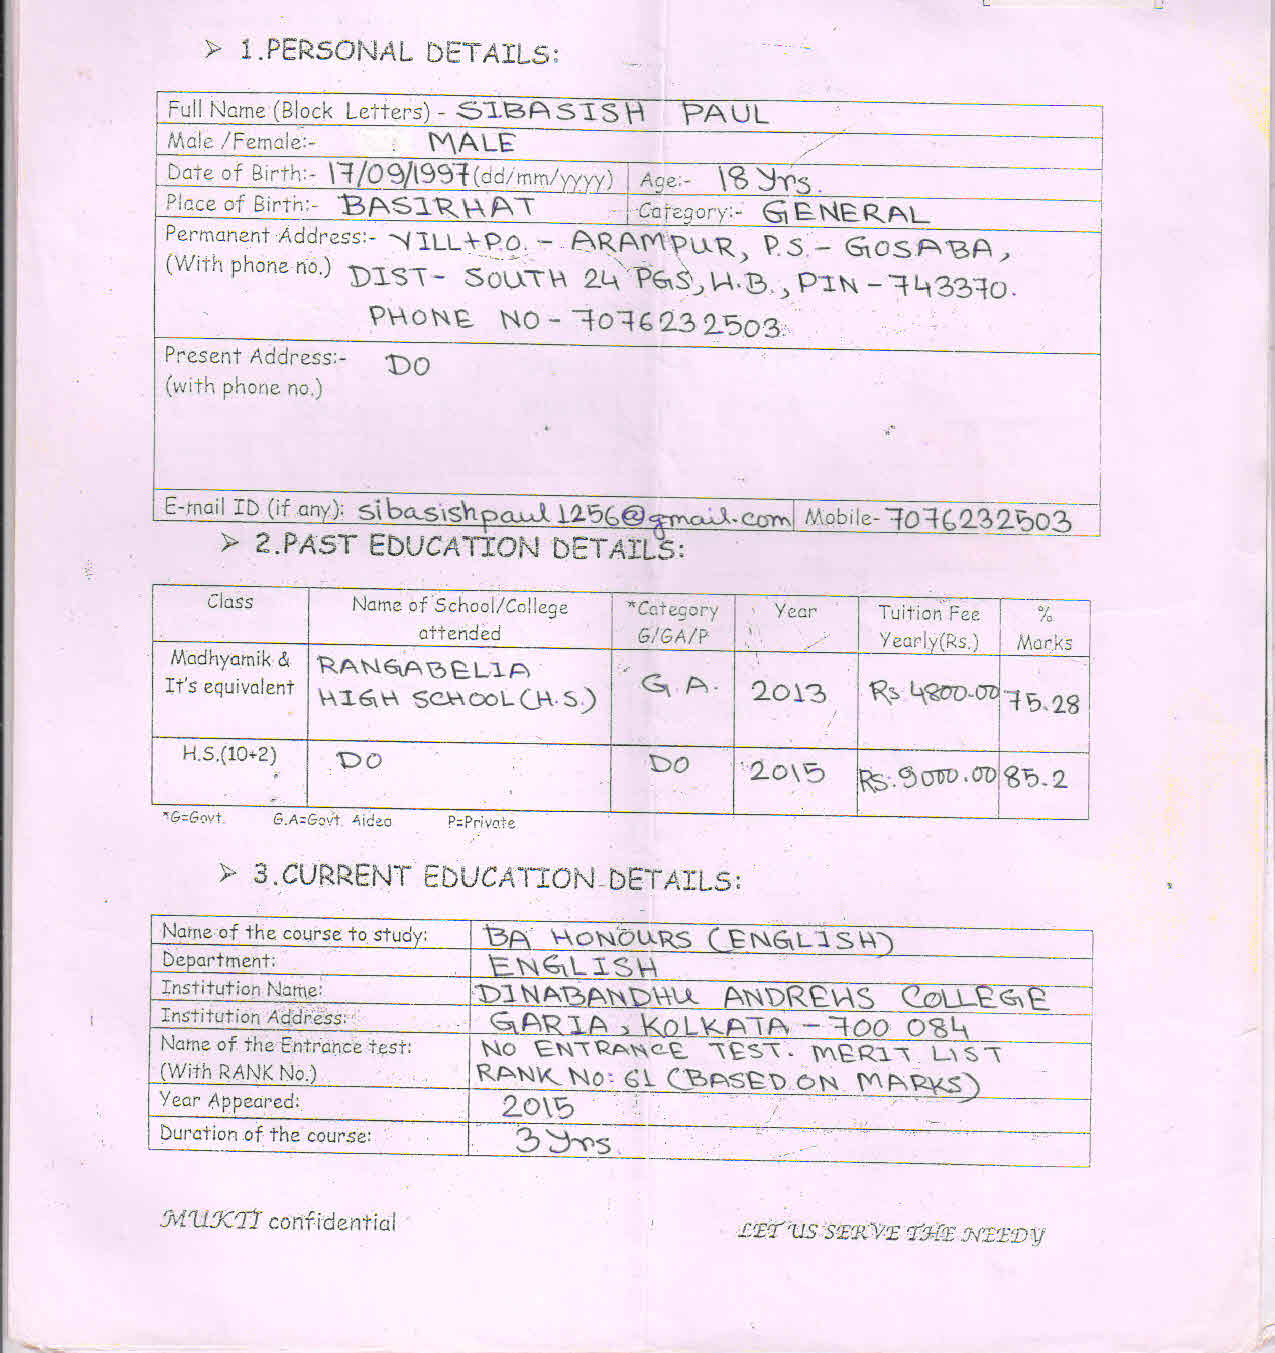 ➢ 1.PERSONAL DETAILS:
Full Name (Block Letters) - SIBASISH PAUL
Male /Female:- MALE
Date of Birth:- 17/09/1997 (dd/mm/yyyy) Age:- 18 Yrs.
Place of Birth:- BASIRHAT Category:- GENERAL
Permanent Address:- VILL+P.O. - ARAMPUR, P.S. - GOSABA,
(With phone no.) DIST- SOUTH 24 PGS, W.B., PIN - 743370.
PHONE NO - 7076232503.
Present Address:- DO
(with phone no.)
E-mail ID (if any): sibasishpaul1256@gmail.com Mobile- 7076232503
➢ 2.PAST EDUCATION DETAILS:
Class Name of School/College *Category Year Tuition Fee %
attended G/GA/P Yearly(Rs.) Marks
Madhyamik & RANGABELIA
It's equivalent HIGH SCHOOL (H.S.) G.A. 2013 Rs 4800.00 75.28
H.S.(10+2) DO DO 2015 Rs. 9000.00 85.2
*G=Govt. G.A=Govt. Aided P=Private
➢ 3.CURRENT EDUCATION DETAILS:
Name of the course to study: BA HONOURS (ENGLISH)
Department: ENGLISH
Institution Name: DINABANDHU ANDREWS COLLEGE
Institution Address: GARIA, KOLKATA - 700 084
Name of the Entrance test: NO ENTRANCE TEST. MERIT LIST
(With RANK No.) RANK NO: 61 (BASED ON MARKS)
Year Appeared: 2015
Duration of the course: 3 Yrs.
MUKTI confidential LET US SERVE THE NEEDY